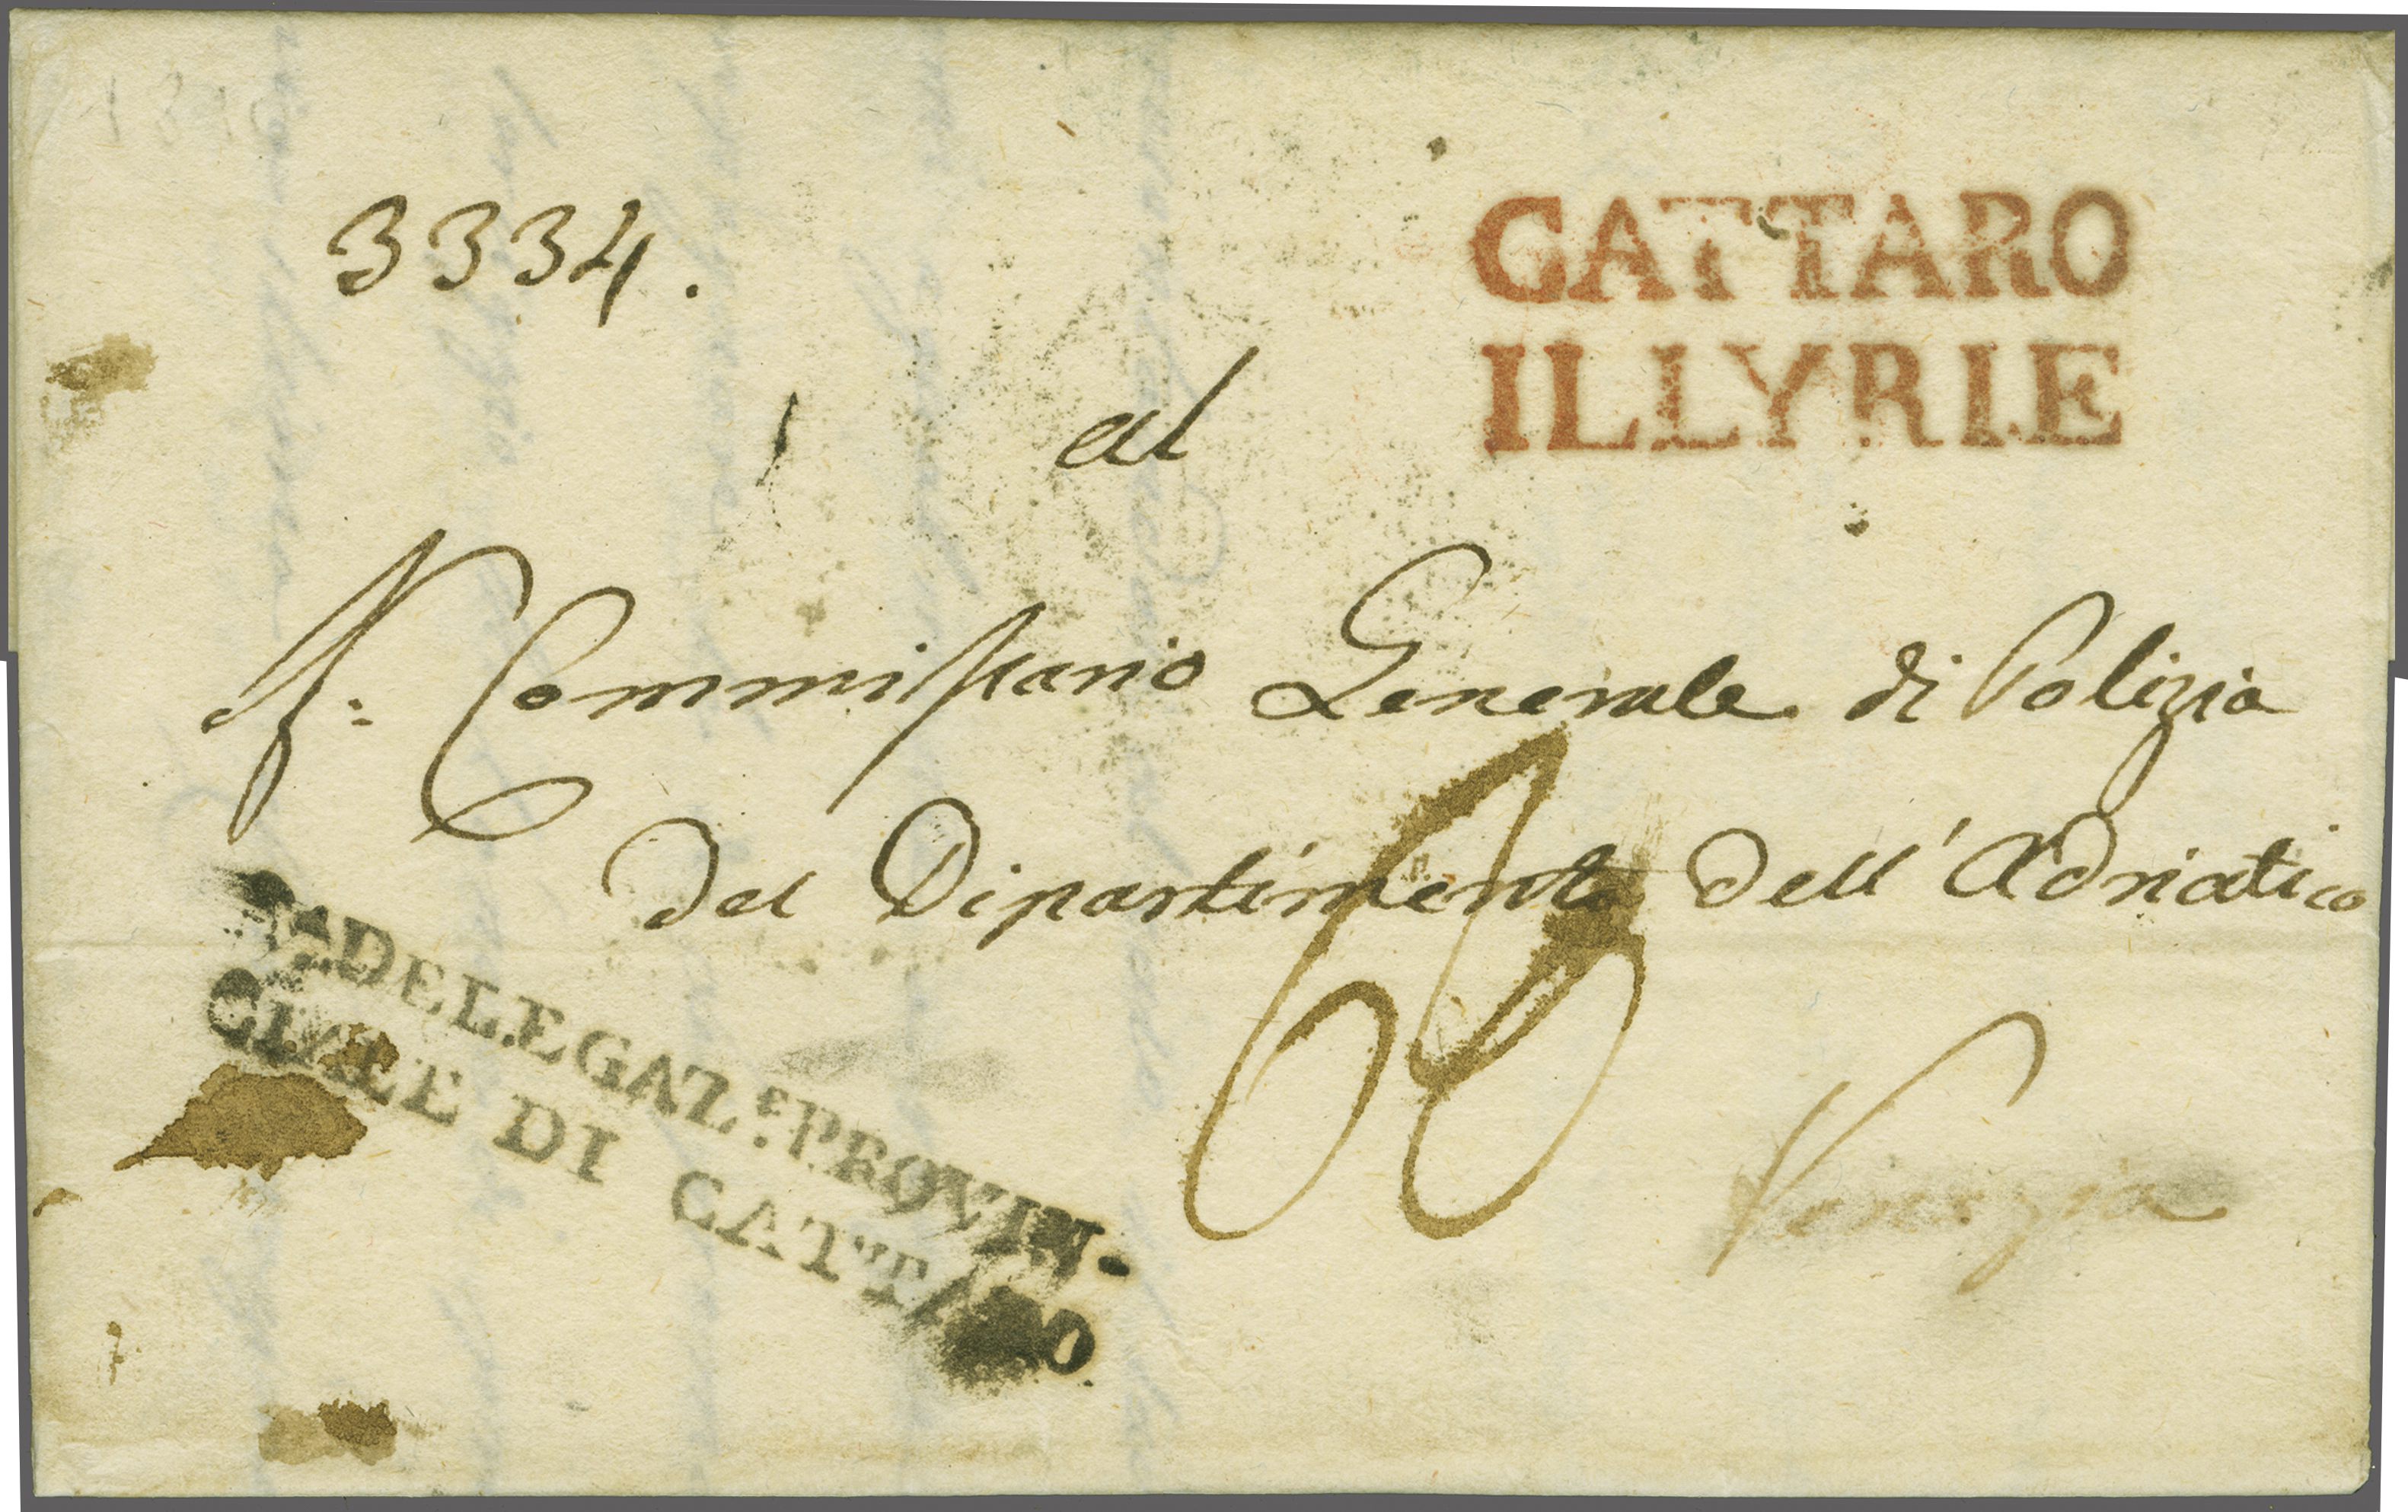 3334.
CATTARO
ILLYRIE
al
Commissario Generale di Polizia
del Dipartimento dell'Adriatico
DELEGAZ.E PROVIN-
CIALE DI CATTARO
66
Venezia